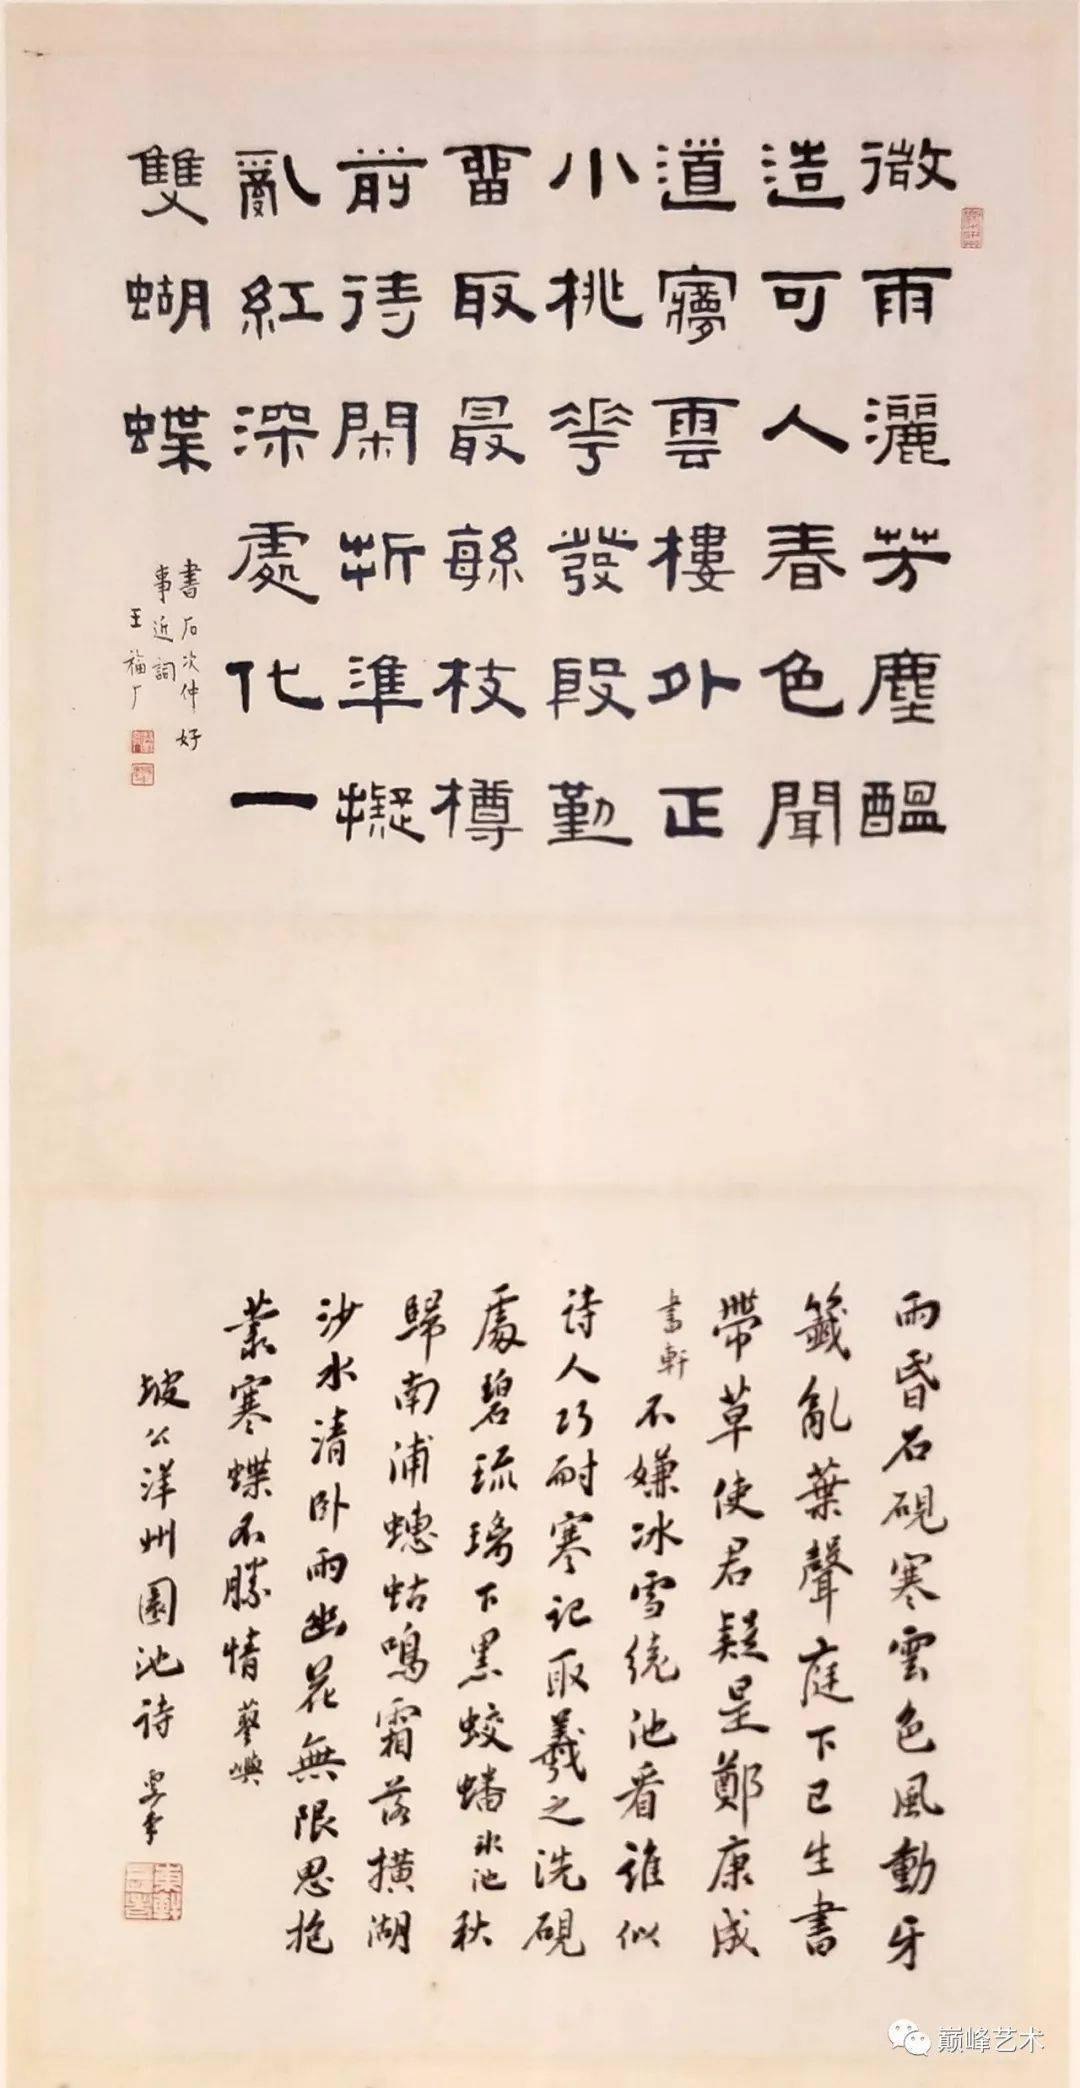 微雨灑芳塵醖
造可人春色聞
道㝱雲樓外正
小桃花發段勤
畱取最緐枝樽
前待閑折準擬
亂紅深處化一
雙蝴蝶
書石次仲好
事近詞
王福厂
雨昏石硯寒雲色風動牙
籤亂葉聲庭下已生書
帶草使君疑是鄭康成
書軒不嫌冰雪繞池看誰似
詩人巧耐寒記取羲之洗硯
處碧琉璃下黑蛟蟠冰池秋
歸南浦蟪蛄鳴霜落橫湖
沙水清卧雨幽花無限思抱
叢寒蝶不勝情蓼嶼
坡公洋州園池詩
巅峰艺术